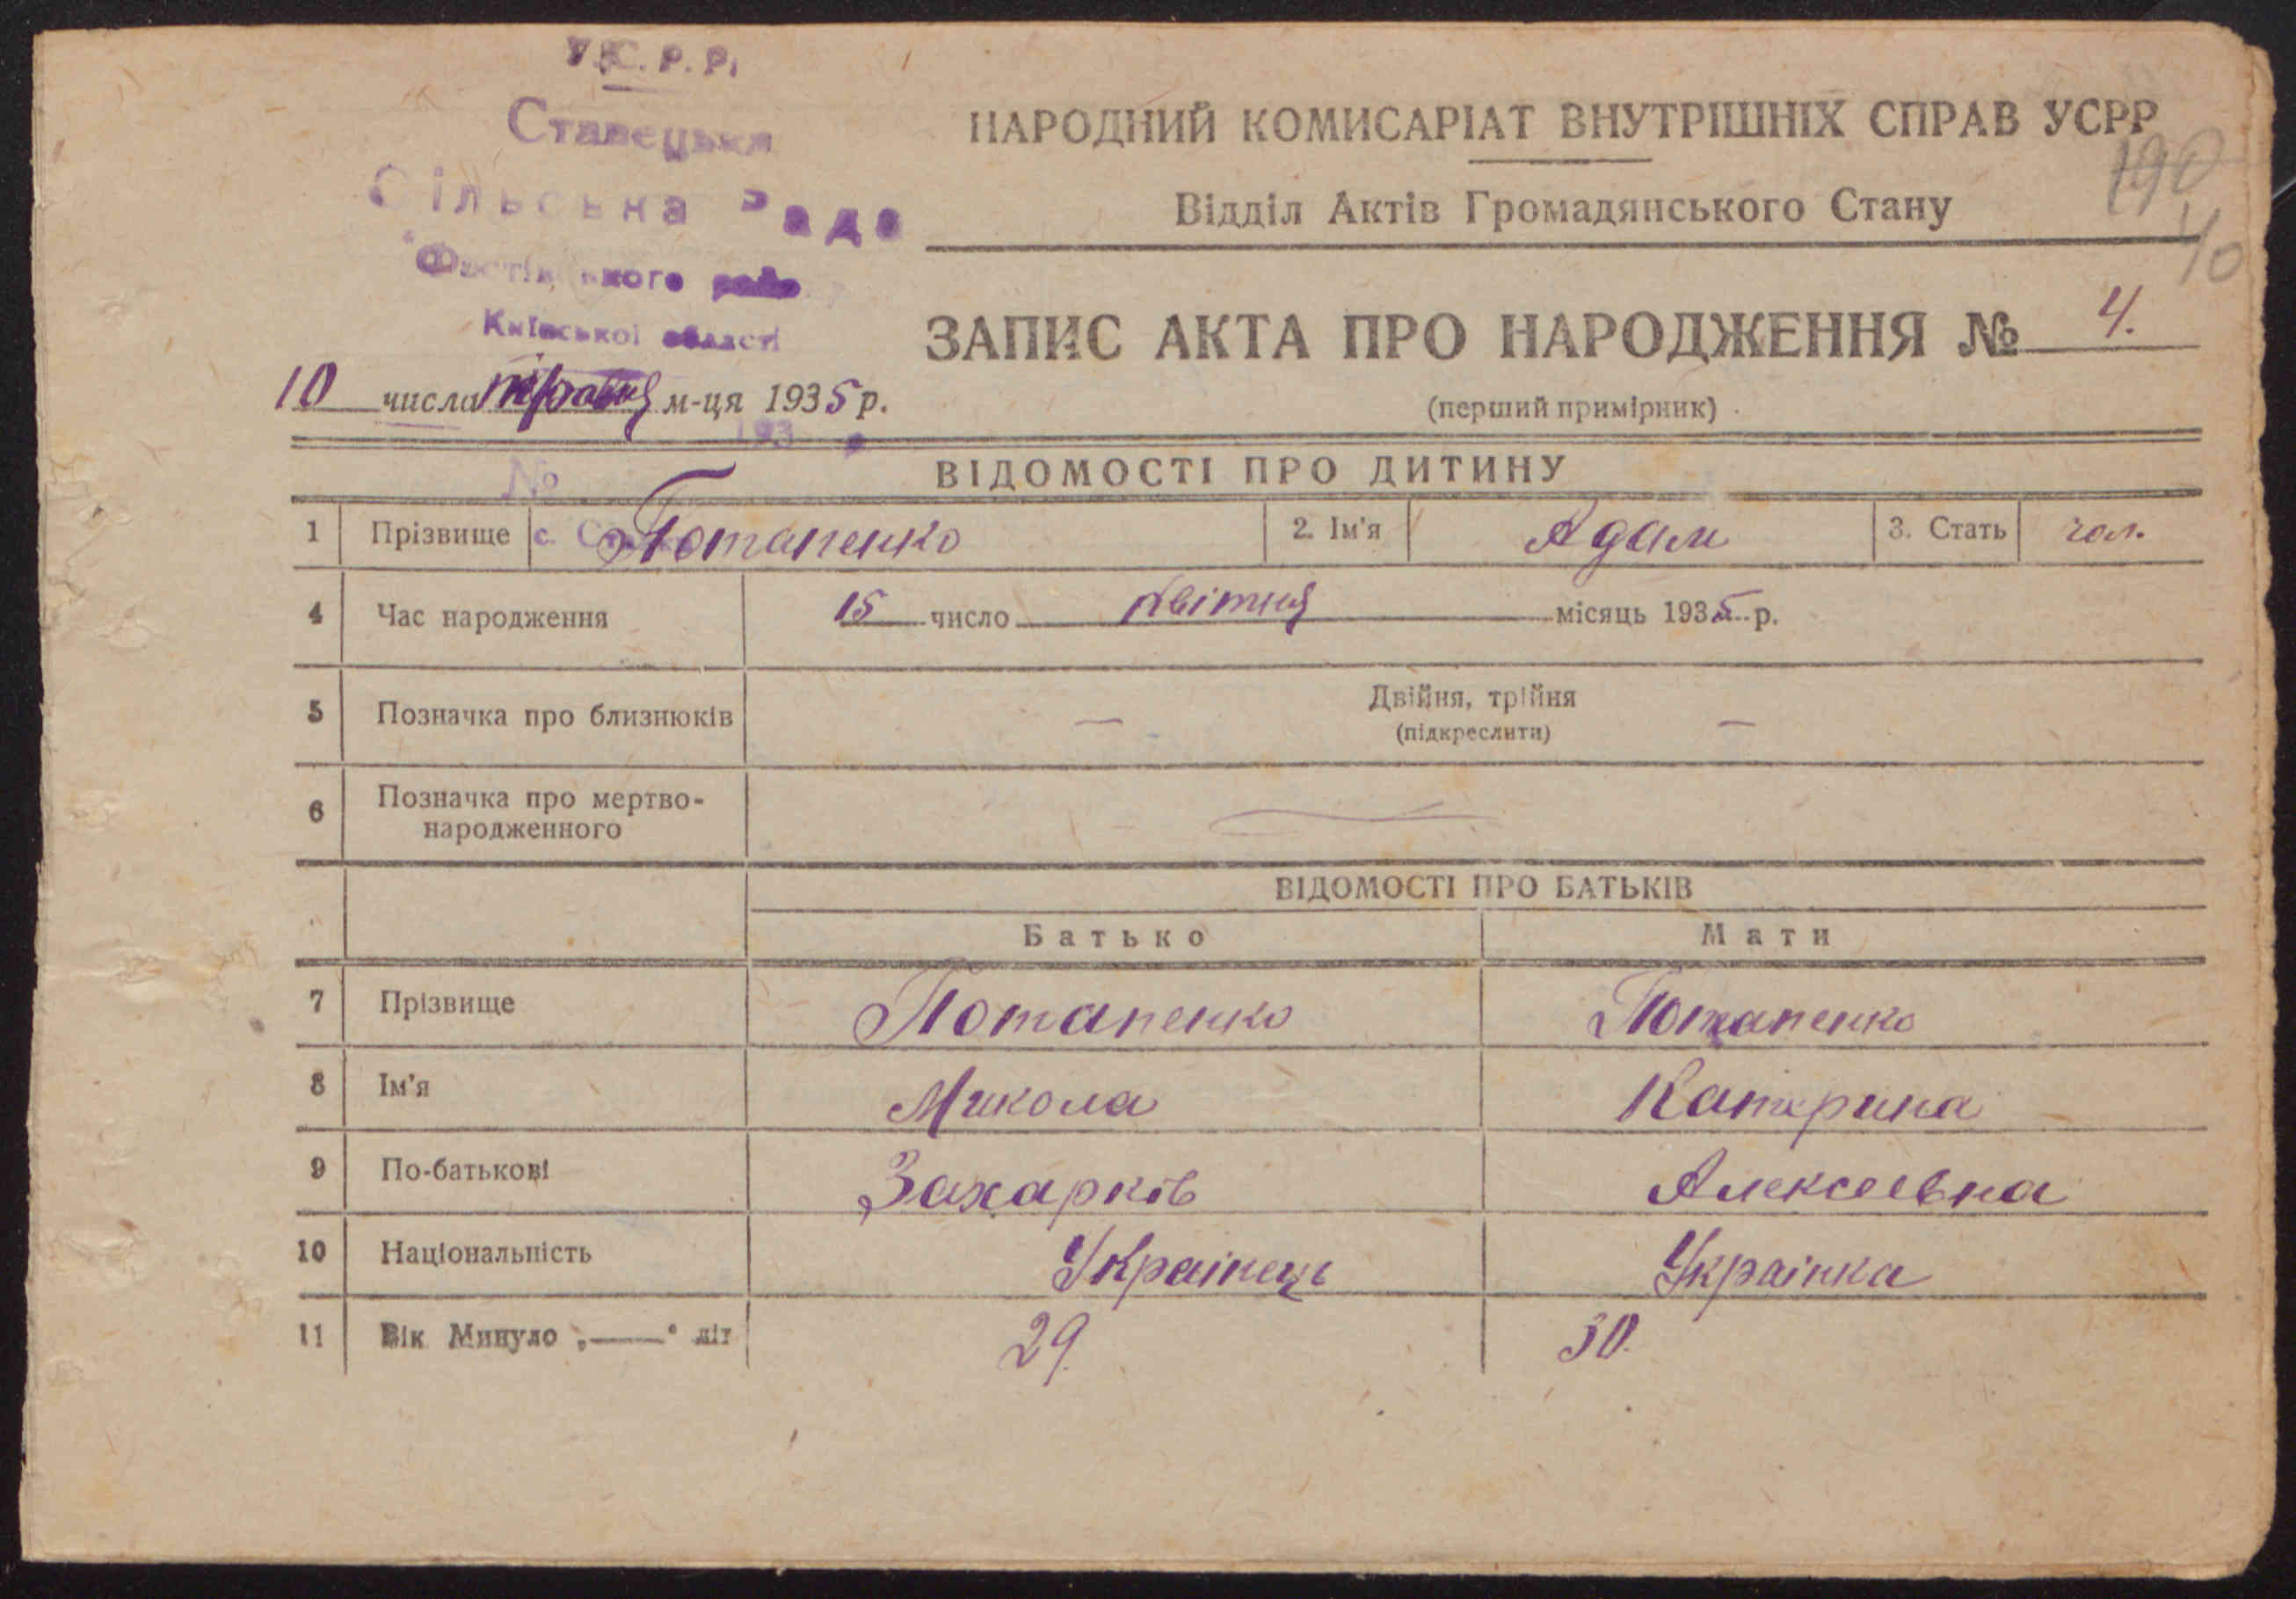 У.С.Р.Р.
Ставецька
Сільська Рада
Фастівського району
Київської області
НАРОДНИЙ КОМИСАРІАТ ВНУТРІШНІХ СПРАВ УСРР
190
Відділ Актів Громадянського Стану
40
ЗАПИС АКТА ПРО НАРОДЖЕННЯ № 4.
10 числа травня м-ця 1935 р.
(перший примірник)
193
№
ВІДОМОСТІ ПРО ДИТИНУ
1 Прізвище с. Потапенко 2. Ім'я Адам 3. Стать чол.
4 Час народження 15 число квітня місяць 1935 р.
5 Позначка про близнюків — Двійня, трійня —
(підкреслити)
6 Позначка про мертво-
народженного
ВІДОМОСТІ ПРО БАТЬКІВ
Батько Мати
7 Прізвище Потапенко Потапенко
8 Ім'я Микола Катерина
9 По-батькові Захарків Алексеевна
10 Національність Украінець Украінка
11 Вік Минуло „——“ літ 29. 30.